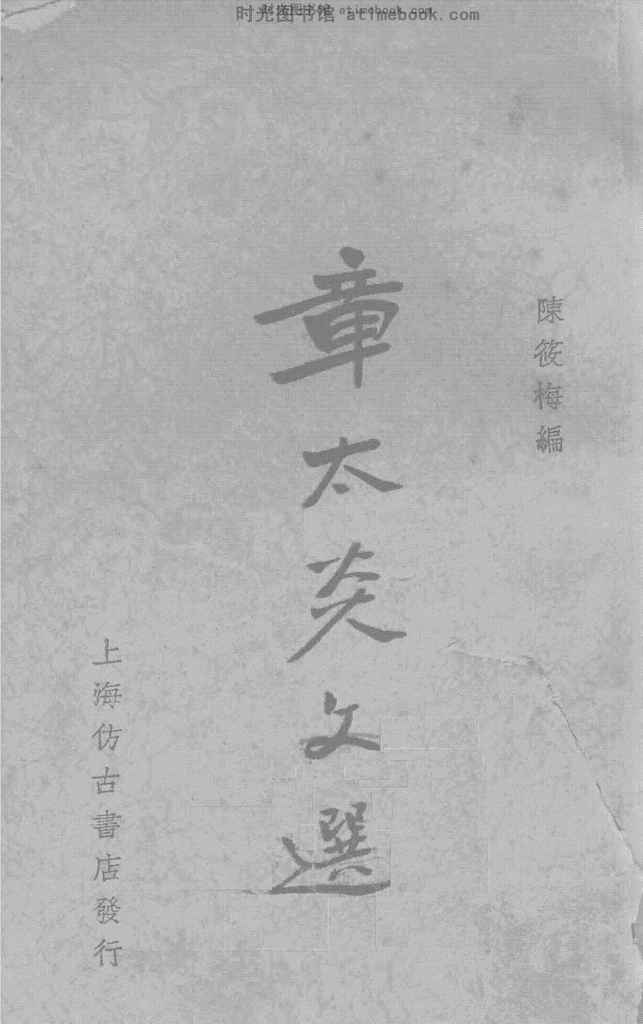 时光图书馆 atimebook.com
陳筱梅編
章太炎文選
上海仿古書店發行